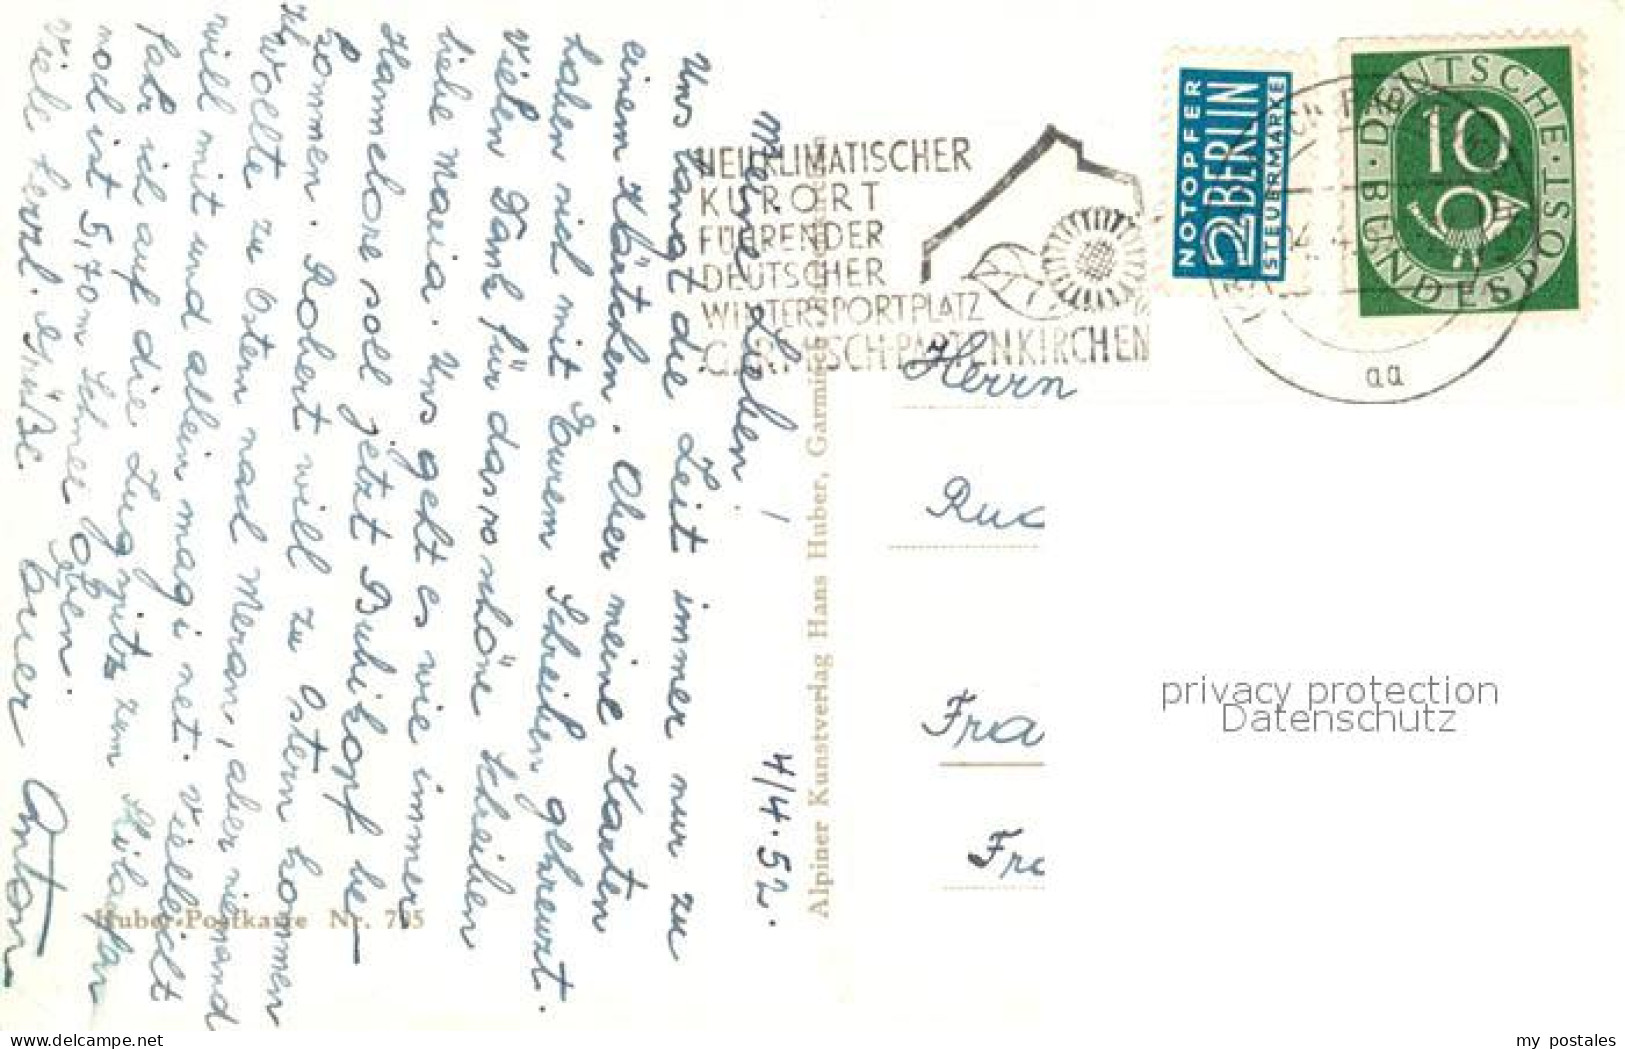 4/4.52.
Meine Lieben!
Uns langt die Zeit immer nur zu
einem Kärtchen. Aber meine Karten
haben sich mit Eurem Schreiben gekreuzt.
Vielen Dank für das so schöne Schreiben
liebe Maria. Uns geht es wie immer
Hannelore soll jetzt Bubikopf be-
kommen. Robert will zu Ostern kommen
Ich wollte zu Ostern nach Meran, aber niemand
will mit und allein mag i net. Vielleicht
fahr ich auf die Zugspitz zum Skilaufen
noch ist 5,70 m Schnee oben.
Viele herzl. Grüße Euer Anton
Huber-Postkarte Nr. 795
Alpiner Kunstverlag Hans Huber, Garmisch-Partenkirchen
HEILKLIMATISCHER
KURORT
FÜHRENDER
DEUTSCHER
WINTERSPORTPLATZ
GARMISCH-PARTENKIRCHEN
NOTOPFER
2 BERLIN
STEUERMARKE
DEUTSCHE · BUNDESPOST ·
10
aa
Herrn
Fra
privacy protection
Datenschutz
my postales